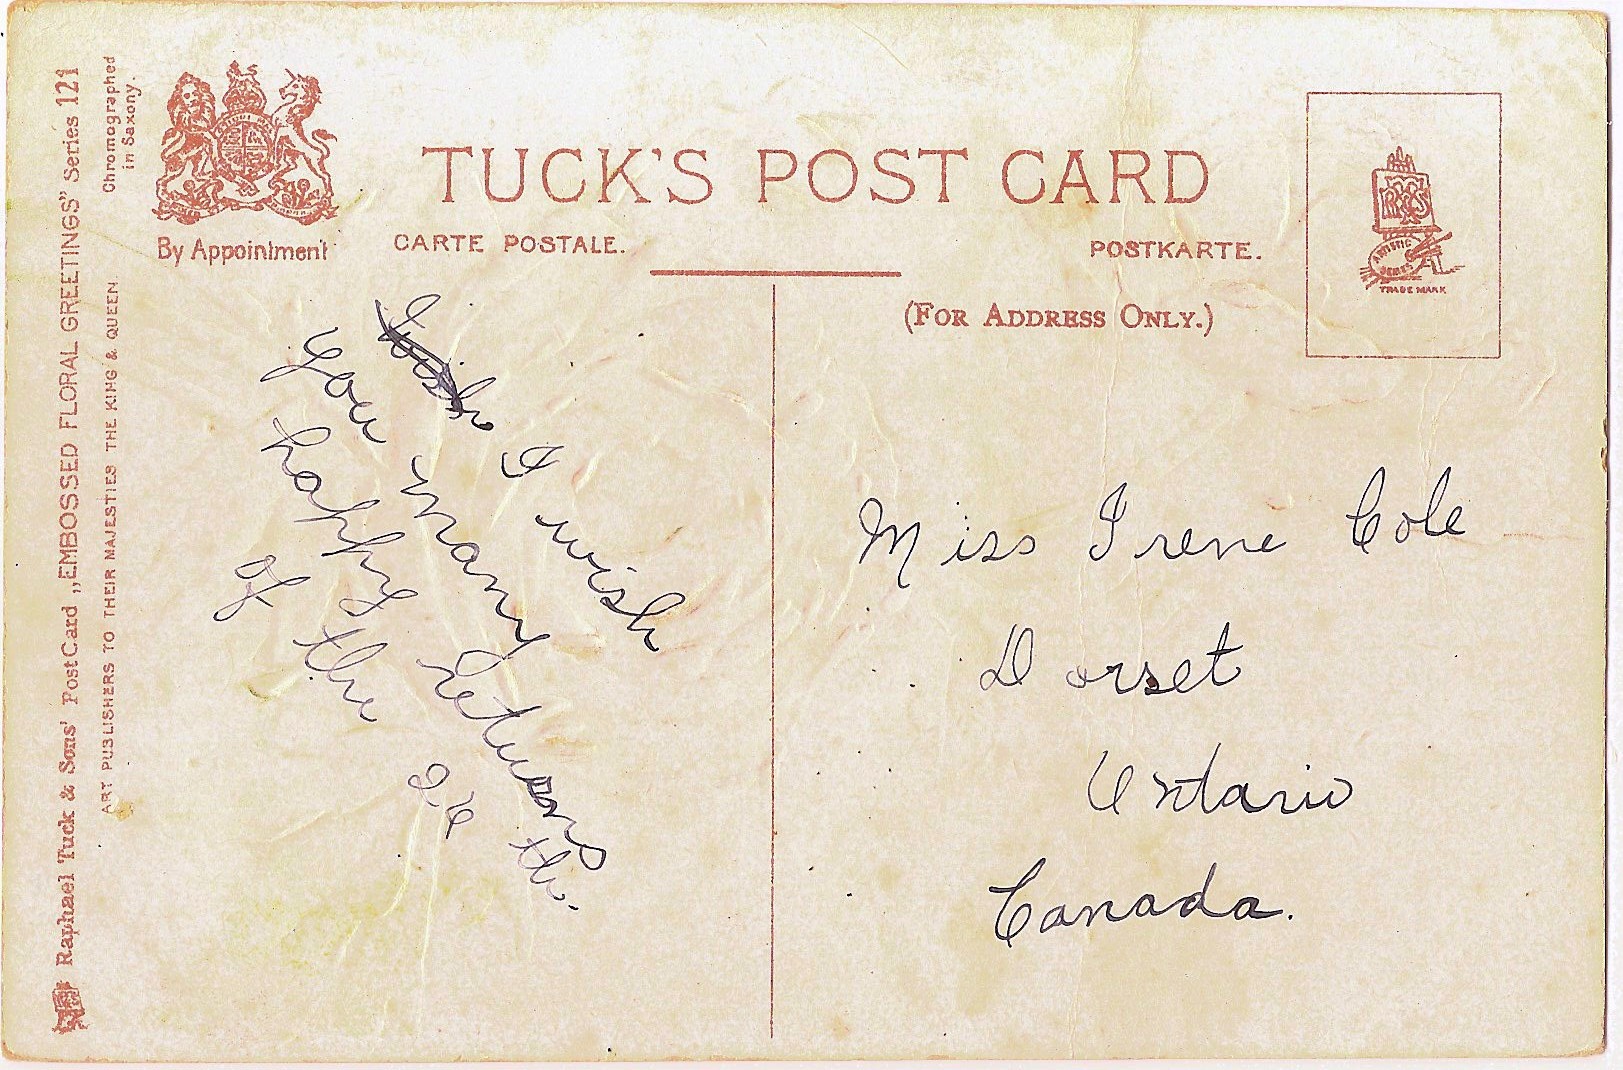 TUCK'S POST CARD
CARTE POSTALE.
POSTKARTE.
(FOR ADDRESS ONLY.)
By Appointment
Raphael Tuck & Sons' PostCard „EMBOSSED FLORAL GREETINGS" Series 121
Chromographed
in Saxony.
ART PUBLISHERS TO THEIR MAJESTIES THE KING & QUEEN.
ARTISTIC
SERIES
TRADE MARK
wish I wish
you many returns
happy
of the 26 th.
Miss Irene Cole
Dorset
Ontario
Canada.